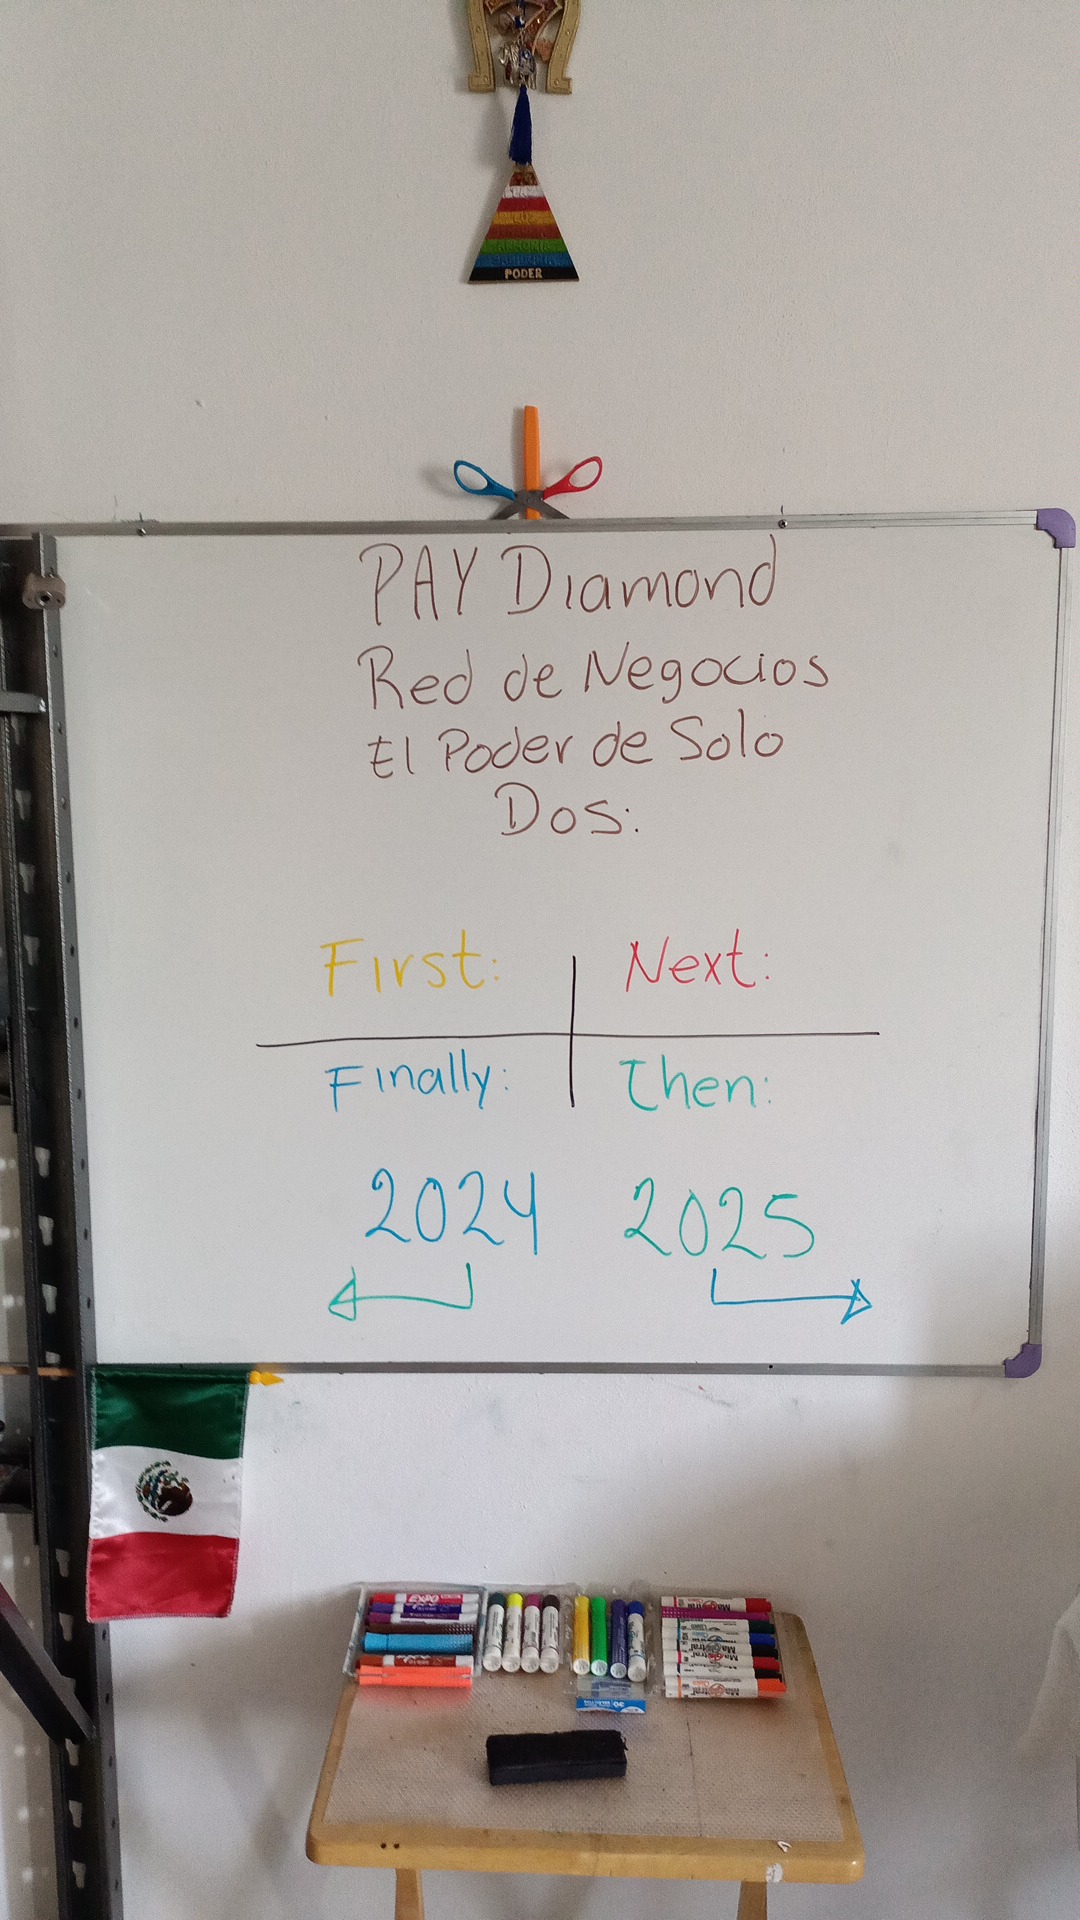 PODER
PAY Diamond
Red de Negocios
El Poder de Solo
Dos:
First: Next:
Finally: Then:
2024 2025
EXPO
Magistral
Magistral
Magistral